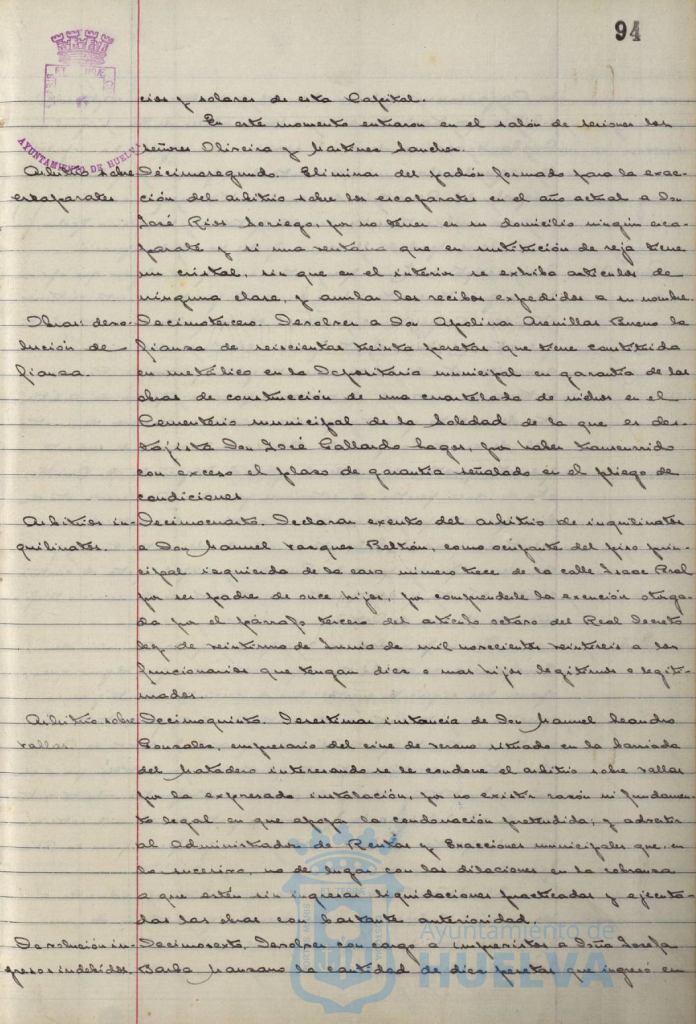 94
AYUNTAMIENTO DE HUELVA
cios y solares de esta Capital.
En este momento entraron en el salón de sesiones los
señores Oliveira y Martinez Sanchez.
Arbitrio sobre escaparates
Decimosegundo. Eliminar del padrón formado para la exac-
ción del arbitrio sobre los escaparates en el año actual a Don
José Rios Soriego, por no tener en su domicilio ningún esca-
parate y si una ventana que en sustitución de reja tiene
un cristal, sin que en el interior se exhiba artículos de
ninguna clase, y anular los recibos expedidos a su nombre.
Obras: devo-
lución de
fianza.
Decimotercero. Devolver a Don Apolinar Arenillas Bueno la
fianza de seiscientas treinta pesetas que tiene constituida
en metálico en la Depositaría municipal en garantía de las
obras de construcción de una cuartelada de nichos en el
Cementerio municipal de la Soledad de la que es des-
tajista Don José Gallardo Lagos, por haber transcurrido
con exceso el plazo de garantía señalado en el pliego de
condiciones
Arbitrios in-
quilinatos.
Decimocuarto. Declarar exento del arbitrio de inquilinatos
a Don Manuel Vazquez Beltrán, como ocupante del piso prin-
cipal izquierda de la casa número trece de la calle Isaac Peral
por ser padre de once hijos, por comprenderle la exención otorga-
da por el párrafo tercero del artículo octavo del Real Decreto
ley de veintiuno de Junio de mil novecientos veintiseis a los
funcionarios que tengan diez o mas hijos legítimos o legiti-
mados.
Arbitrio sobre
vallas.
Decimoquinto. Desestimar instancia de Don Manuel Leandro
Gonzalez, empresario del cine de verano situado en la barriada
del Matadero interesando se le condone el arbitrio sobre vallas
por la expresada instalación, por no existir razón ni fundamen-
to legal en que apoyar la condonación pretendida; y advertir
al Administrador de Rentas y Exacciones municipales que, en
lo sucesivo, no de lugar con las dilaciones en la cobranza
a que estén sin ingresar liquidaciones practicadas y ejecuta-
das las obras con bastante anterioridad.
Devolución in-
gresos indebidos.
Decimosexto. Devolver con cargo a imprevistos a Doña Josefa
Barba Manzano la cantidad de diez pesetas que ingresó en
Ayuntamiento de
HUELVA